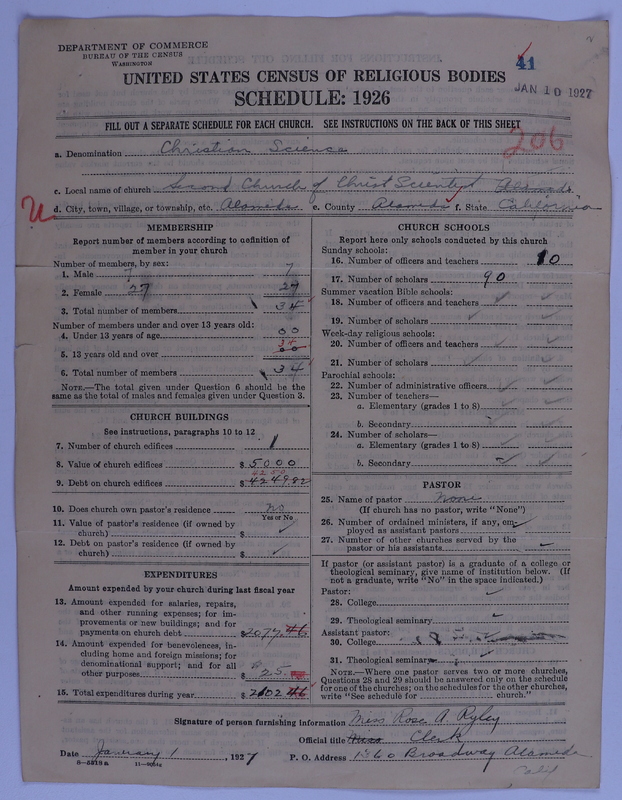 DEPARTMENT OF COMMERCE
BUREAU OF THE CENSUS
WASHINGTON
41
UNITED STATES CENSUS OF RELIGIOUS BODIES
JAN 10 1927
SCHEDULE: 1926
FILL OUT A SEPARATE SCHEDULE FOR EACH CHURCH. SEE INSTRUCTIONS ON THE BACK OF THIS SHEET
206
a. Denomination Christian Science
c. Local name of church Second Church of Christ Scientist Alameda
d. City, town, village, or township, etc. Alameda e. County Alameda f. State California
MEMBERSHIP
Report number of members according to definition of
member in your church
Number of members, by sex:
1. Male 7 7
2. Female 27 27
3. Total number of members 34
Number of members under and over 13 years old:
4. Under 13 years of age 00
34
5. 13 years old and over 00
6. Total number of members 34
NOTE.—The total given under Question 6 should be the
same as the total of males and females given under Question 3.
CHURCH BUILDINGS
See instructions, paragraphs 10 to 12
7. Number of church edifices 1
8. Value of church edifices $5000
4250
9. Debt on church edifices $4249.82
10. Does church own pastor's residence no
Yes or No
11. Value of pastor's residence (if owned by
church) $
12. Debt on pastor's residence (if owned by
church) $
EXPENDITURES
Amount expended by your church during last fiscal year
13. Amount expended for salaries, repairs,
and other running expenses; for im-
provements or new buildings; and for
payments on church debt $2077.46
14. Amount expended for benevolences, in-
cluding home and foreign missions; for
denominational support; and for all
other purposes $25
15. Total expenditures during year $2102.46
CHURCH SCHOOLS
Report here only schools conducted by this church
Sunday schools:
16. Number of officers and teachers 10
17. Number of scholars 90
Summer vacation Bible schools:
18. Number of officers and teachers
19. Number of scholars
Week-day religious schools:
20. Number of officers and teachers
21. Number of scholars
Parochial schools:
22. Number of administrative officers
23. Number of teachers—
a. Elementary (grades 1 to 8)
b. Secondary
24. Number of scholars—
a. Elementary (grades 1 to 8)
b. Secondary
PASTOR
25. Name of pastor None
(If church has no pastor, write "None")
26. Number of ordained ministers, if any, em-
ployed as assistant pastors
27. Number of other churches served by the
pastor or his assistants
If pastor (or assistant pastor) is a graduate of a college or
theological seminary, give name of institution below. (If
not a graduate, write "No" in the space indicated.)
Pastor:
28. College
29. Theological seminary
Assistant pastor:
30. College
31. Theological seminary
NOTE.—Where one pastor serves two or more churches,
Questions 28 and 29 should be answered only on the schedule
for one of the churches; on the schedules for the other churches,
write "See schedule for church."
Signature of person furnishing information Miss Rose A. Ryley
Official title Miss Clerk
Date January 1, 1927 P. O. Address 1360 Broadway Alameda
Calif